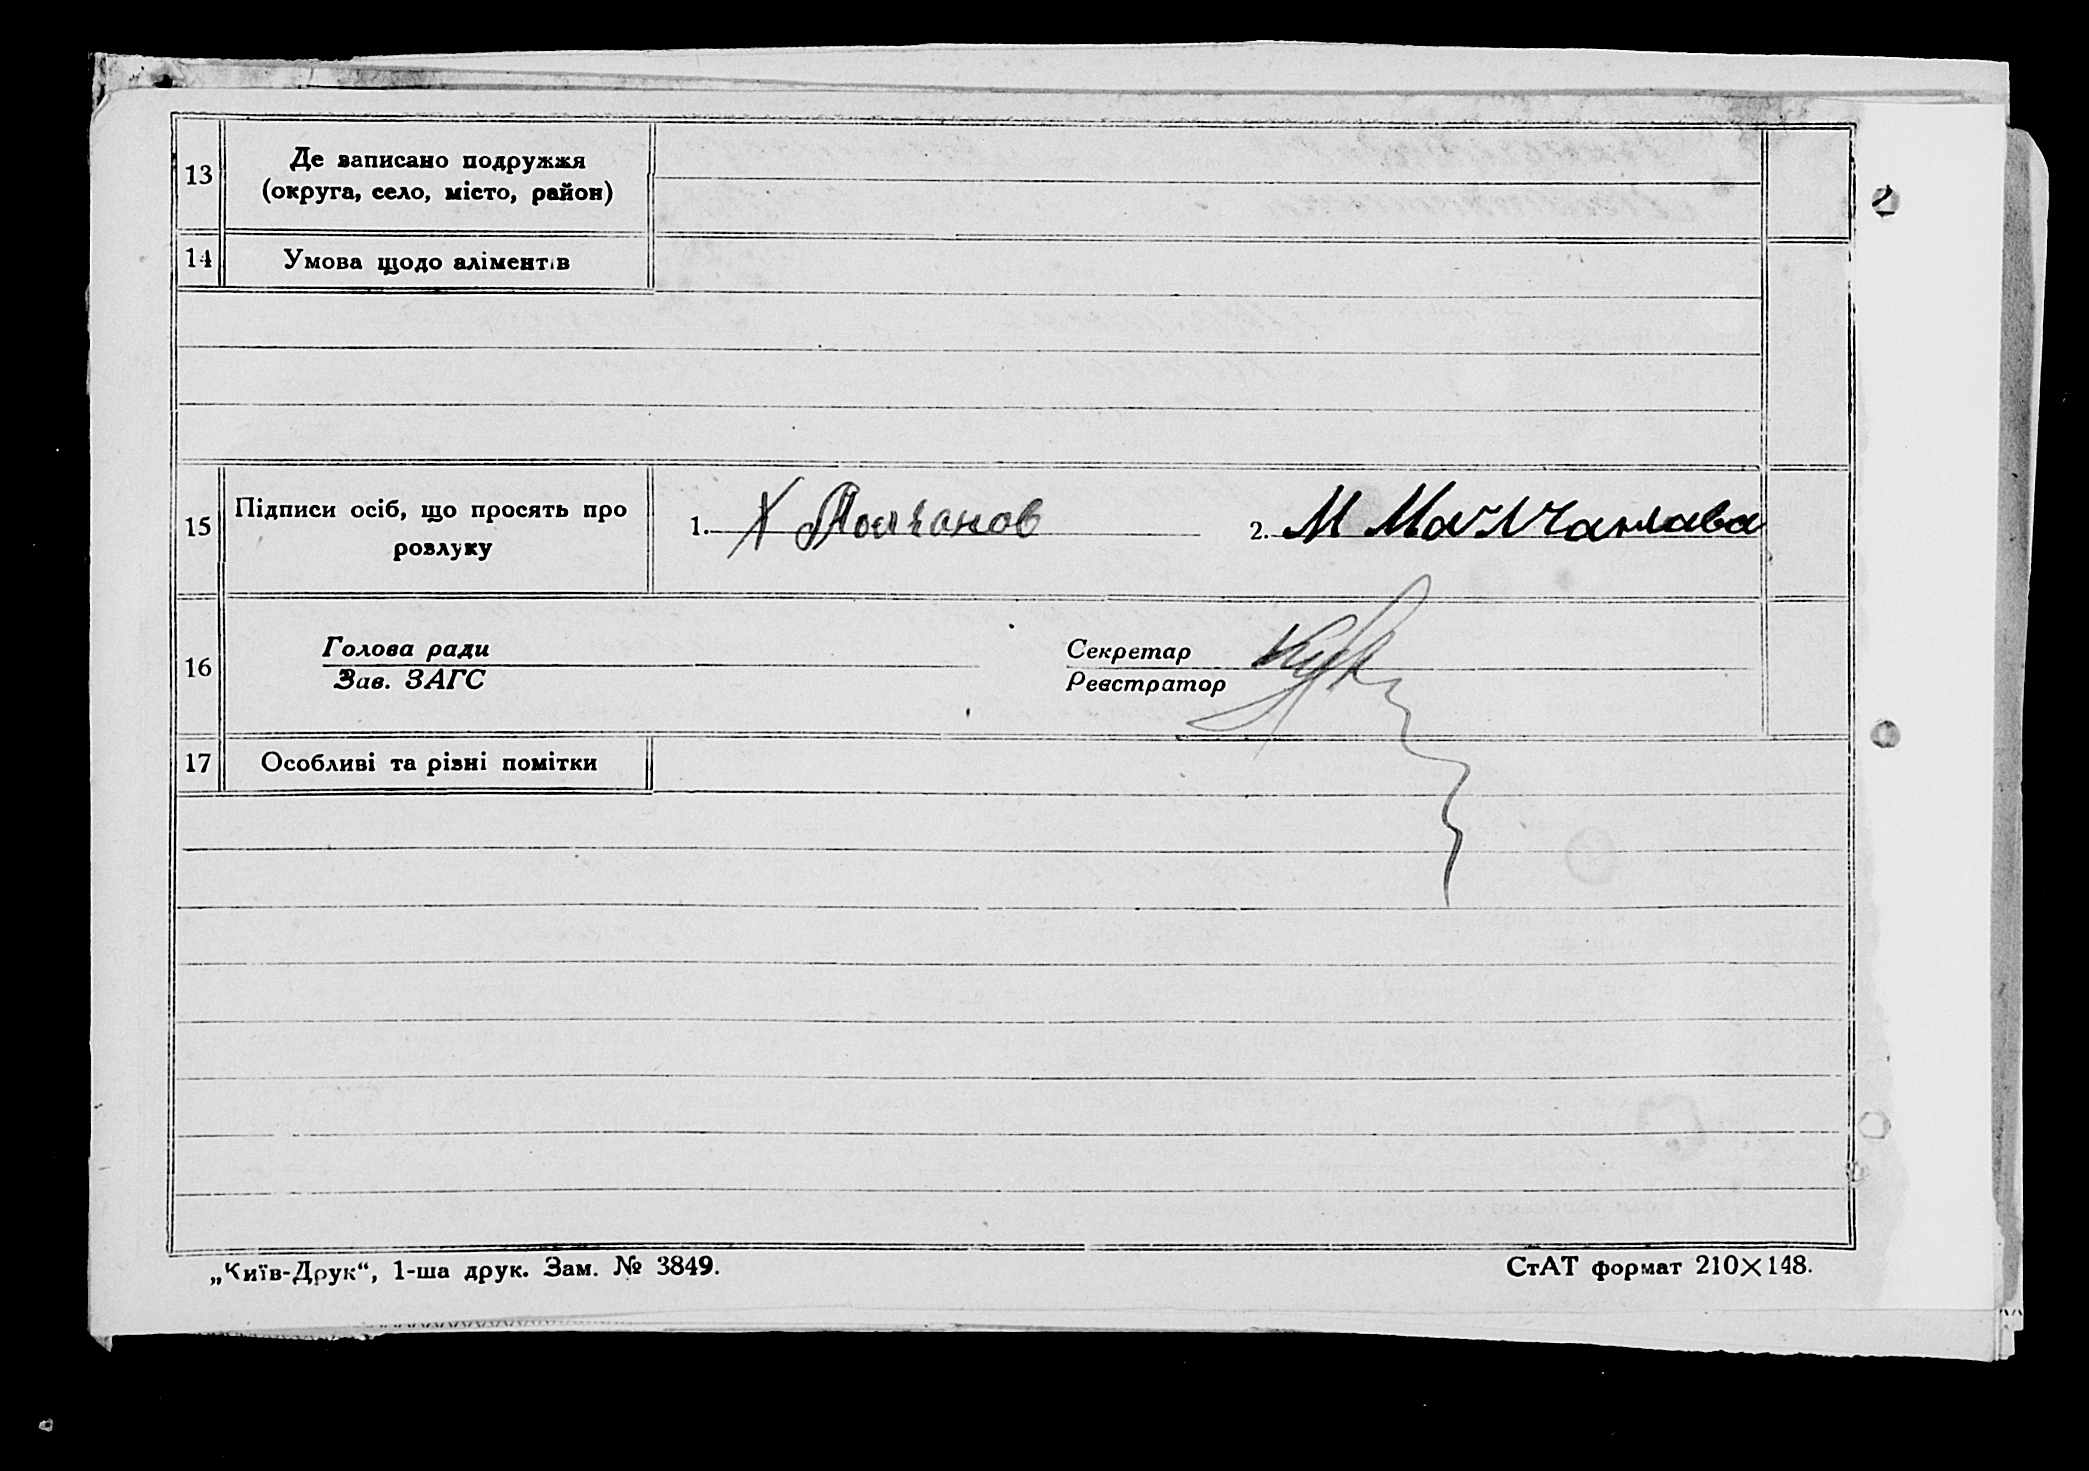 13
Де записано подружжя
(округа, село, місто, район)
14
Умова щодо аліментів
15
Підписи осіб, що просять про
розлуку
1. Х Молчанов
2. М Малчанава
16
Голова ради
Зав. ЗАГС
Секретар
Реєстратор
17
Особливі та різні помітки
„Київ-Друк“, 1-ша друк. Зам. № 3849.
СтАТ формат 210×148.